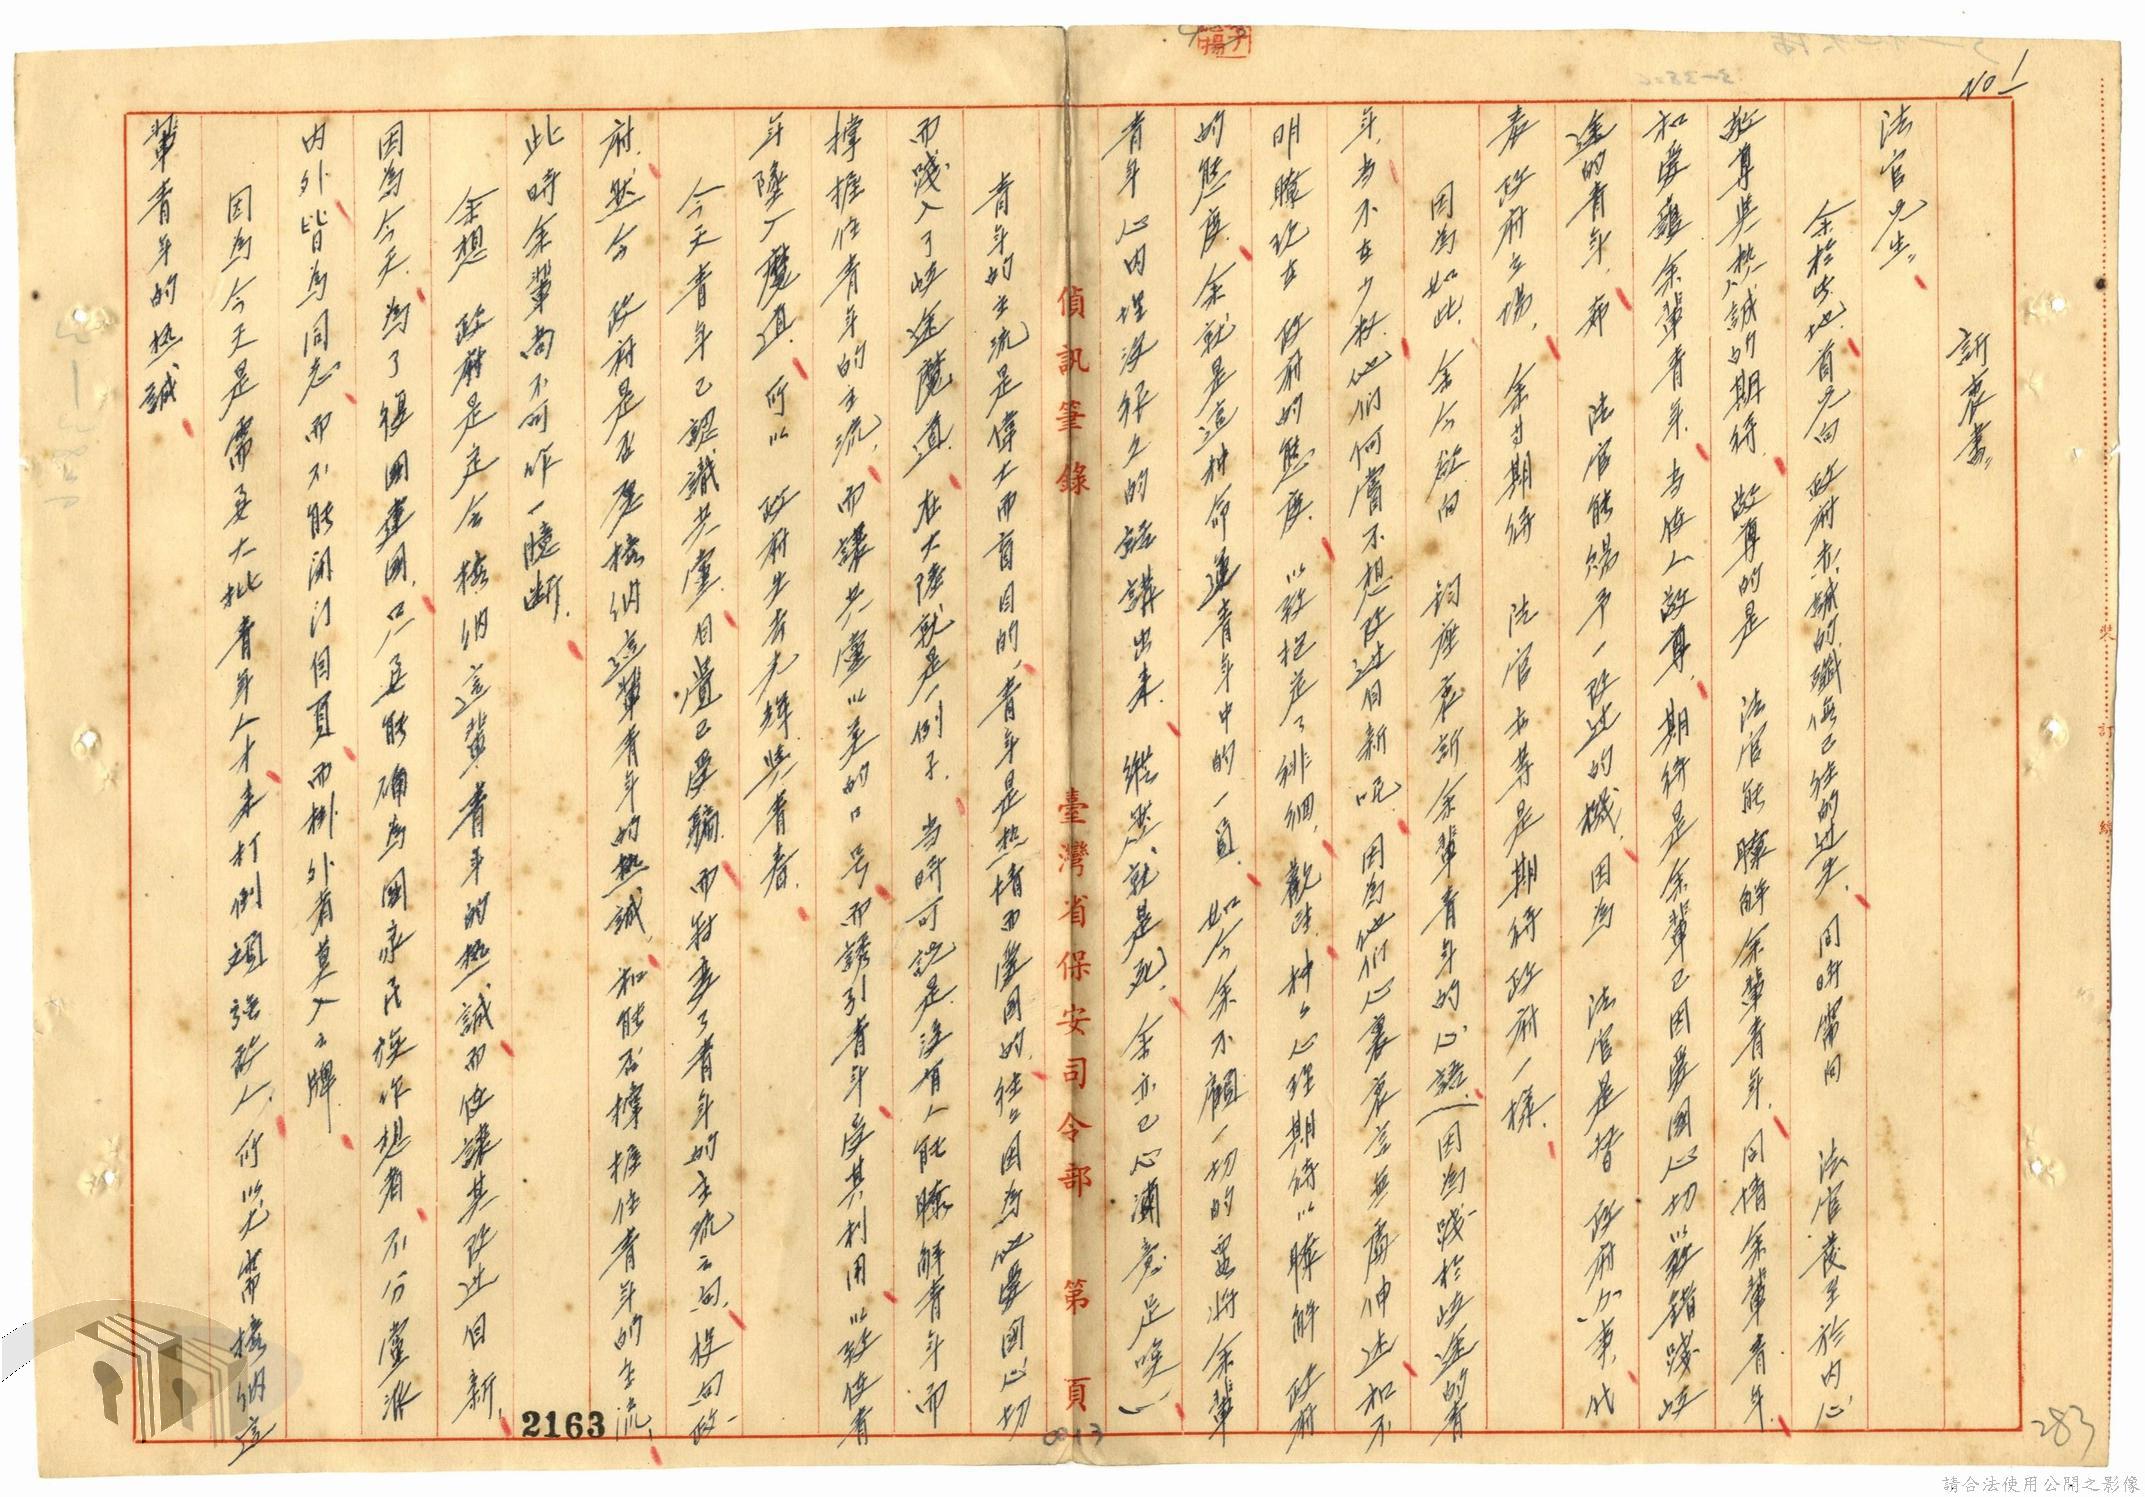 No 1
訴衷書
法官先生
余於此地首先向 政府赤誠的懺悔已往的过失 同時常向 法官發至於內心
敬尊与热誠的期待 敬尊的是 法官能瞭解余輩青年 同情余輩青年
和爱護余輩青年 为使人敬尊 期待是余輩已因爱國心切以致錯踐歧
途的青年 希 法官能賜予一改过的機 因为 法官是替 政府办事 代
表政府立場 余等期待 法官亦等是期待政府一樣
因为如此 余今欲向 鈞座哀訴余輩青年的心語(因为践於歧途的青
年 为不在少数 他们何嘗不想改过自新呢 因为他们心裏哀言無處伸述和不
明瞭現在 政府的態度 以致抱定了徘徊 觀望种々心理期待以瞭解 政府
的態度 余就是這种命運青年中的一員 如今余不顧一切的要将余輩
青年心内埋没很久的語講出来 縱然就是死 余亦已心滿意足唉)
青年的主流是偉大而盲目的 青年是热情而爱國的 往々因为他爱國心切
而践入了歧途魔道 在大陸就是一例子 当時可说是沒有人能瞭解青年而
撑握住青年的主流 而讓共黨以美的口号而誘引青年受其利用以致使青
年墜入魔道 所以 政府失去光輝与青春
今天青年已認識共黨 自覺已受騙 而转变了青年的主流方向 投向政
府 然今 政府是否愿接納這輩青年的热誠 和能否撑握住青年的主流
此時余輩尚不可作一臆断
余想 政府是定会接納這輩青年的热誠而使讓其改过自新
因為今天 为了復國建國 只要能確为國家民族作想者 不分黨派
内外皆为同志 而不能闭门自頁而掛外者莫入之牌
因为今天是需要大批青年人才来打倒頑強敵人 所以尤需接納這
輩青年的热誠
偵訊筆錄 臺灣省保安司令部 第 頁
裝 訂 線
2163
0013
283
請合法使用公開之影像